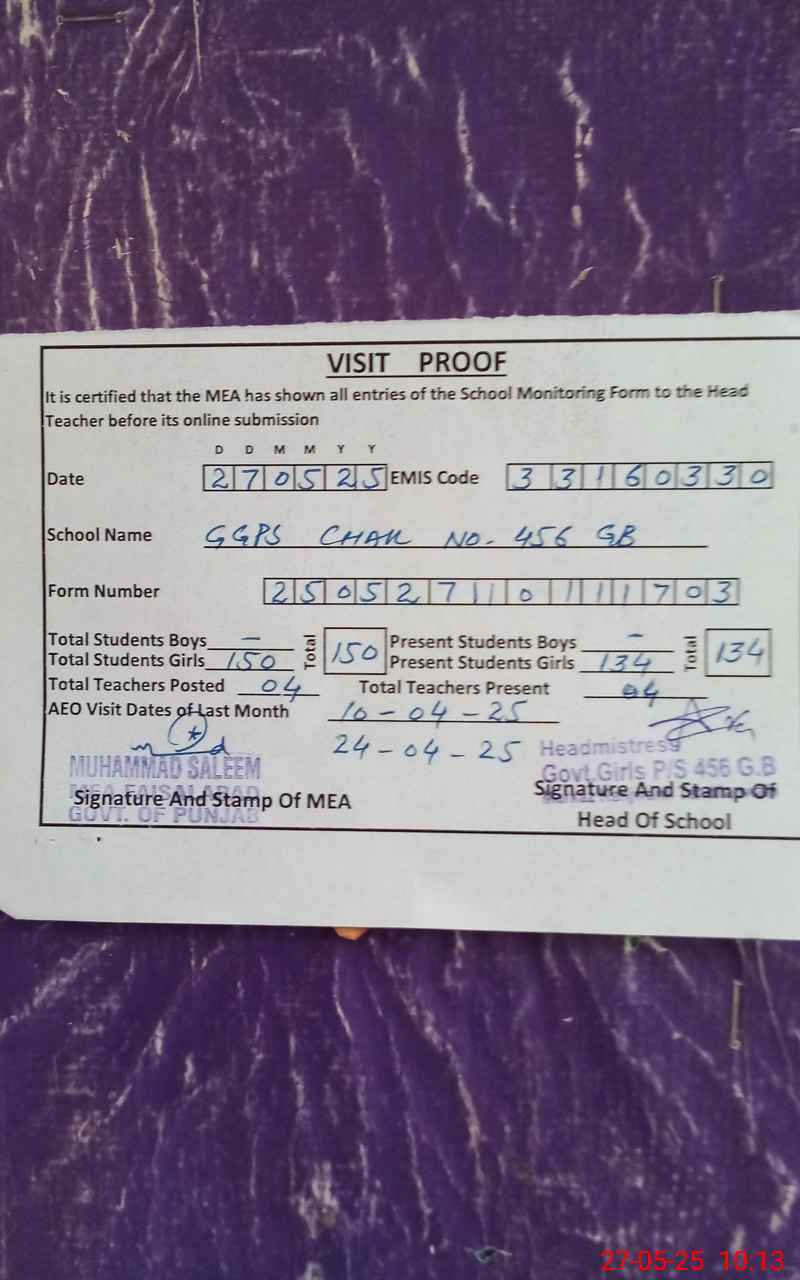 VISIT PROOF
It is certified that the MEA has shown all entries of the School Monitoring Form to the Head
Teacher before its online submission
D D M M Y Y
Date 270525 EMIS Code 33160330
School Name GGPS CHAK NO. 456 GB
Form Number 2505271101111703
Total Students Boys - Total 150 Present Students Boys - Total 134
Total Students Girls 150 Present Students Girls 134
Total Teachers Posted 04 Total Teachers Present 04
AEO Visit Dates of Last Month 10-04-25
24-04-25
MUHAMMAD SALEEM
MEA FAISALABAD
GOVT. OF PUNJAB
Signature And Stamp Of MEA
Headmistress
Govt.Girls P/S 456 G.B
Signature And Stamp Of
Head Of School
27-05-25 10:13